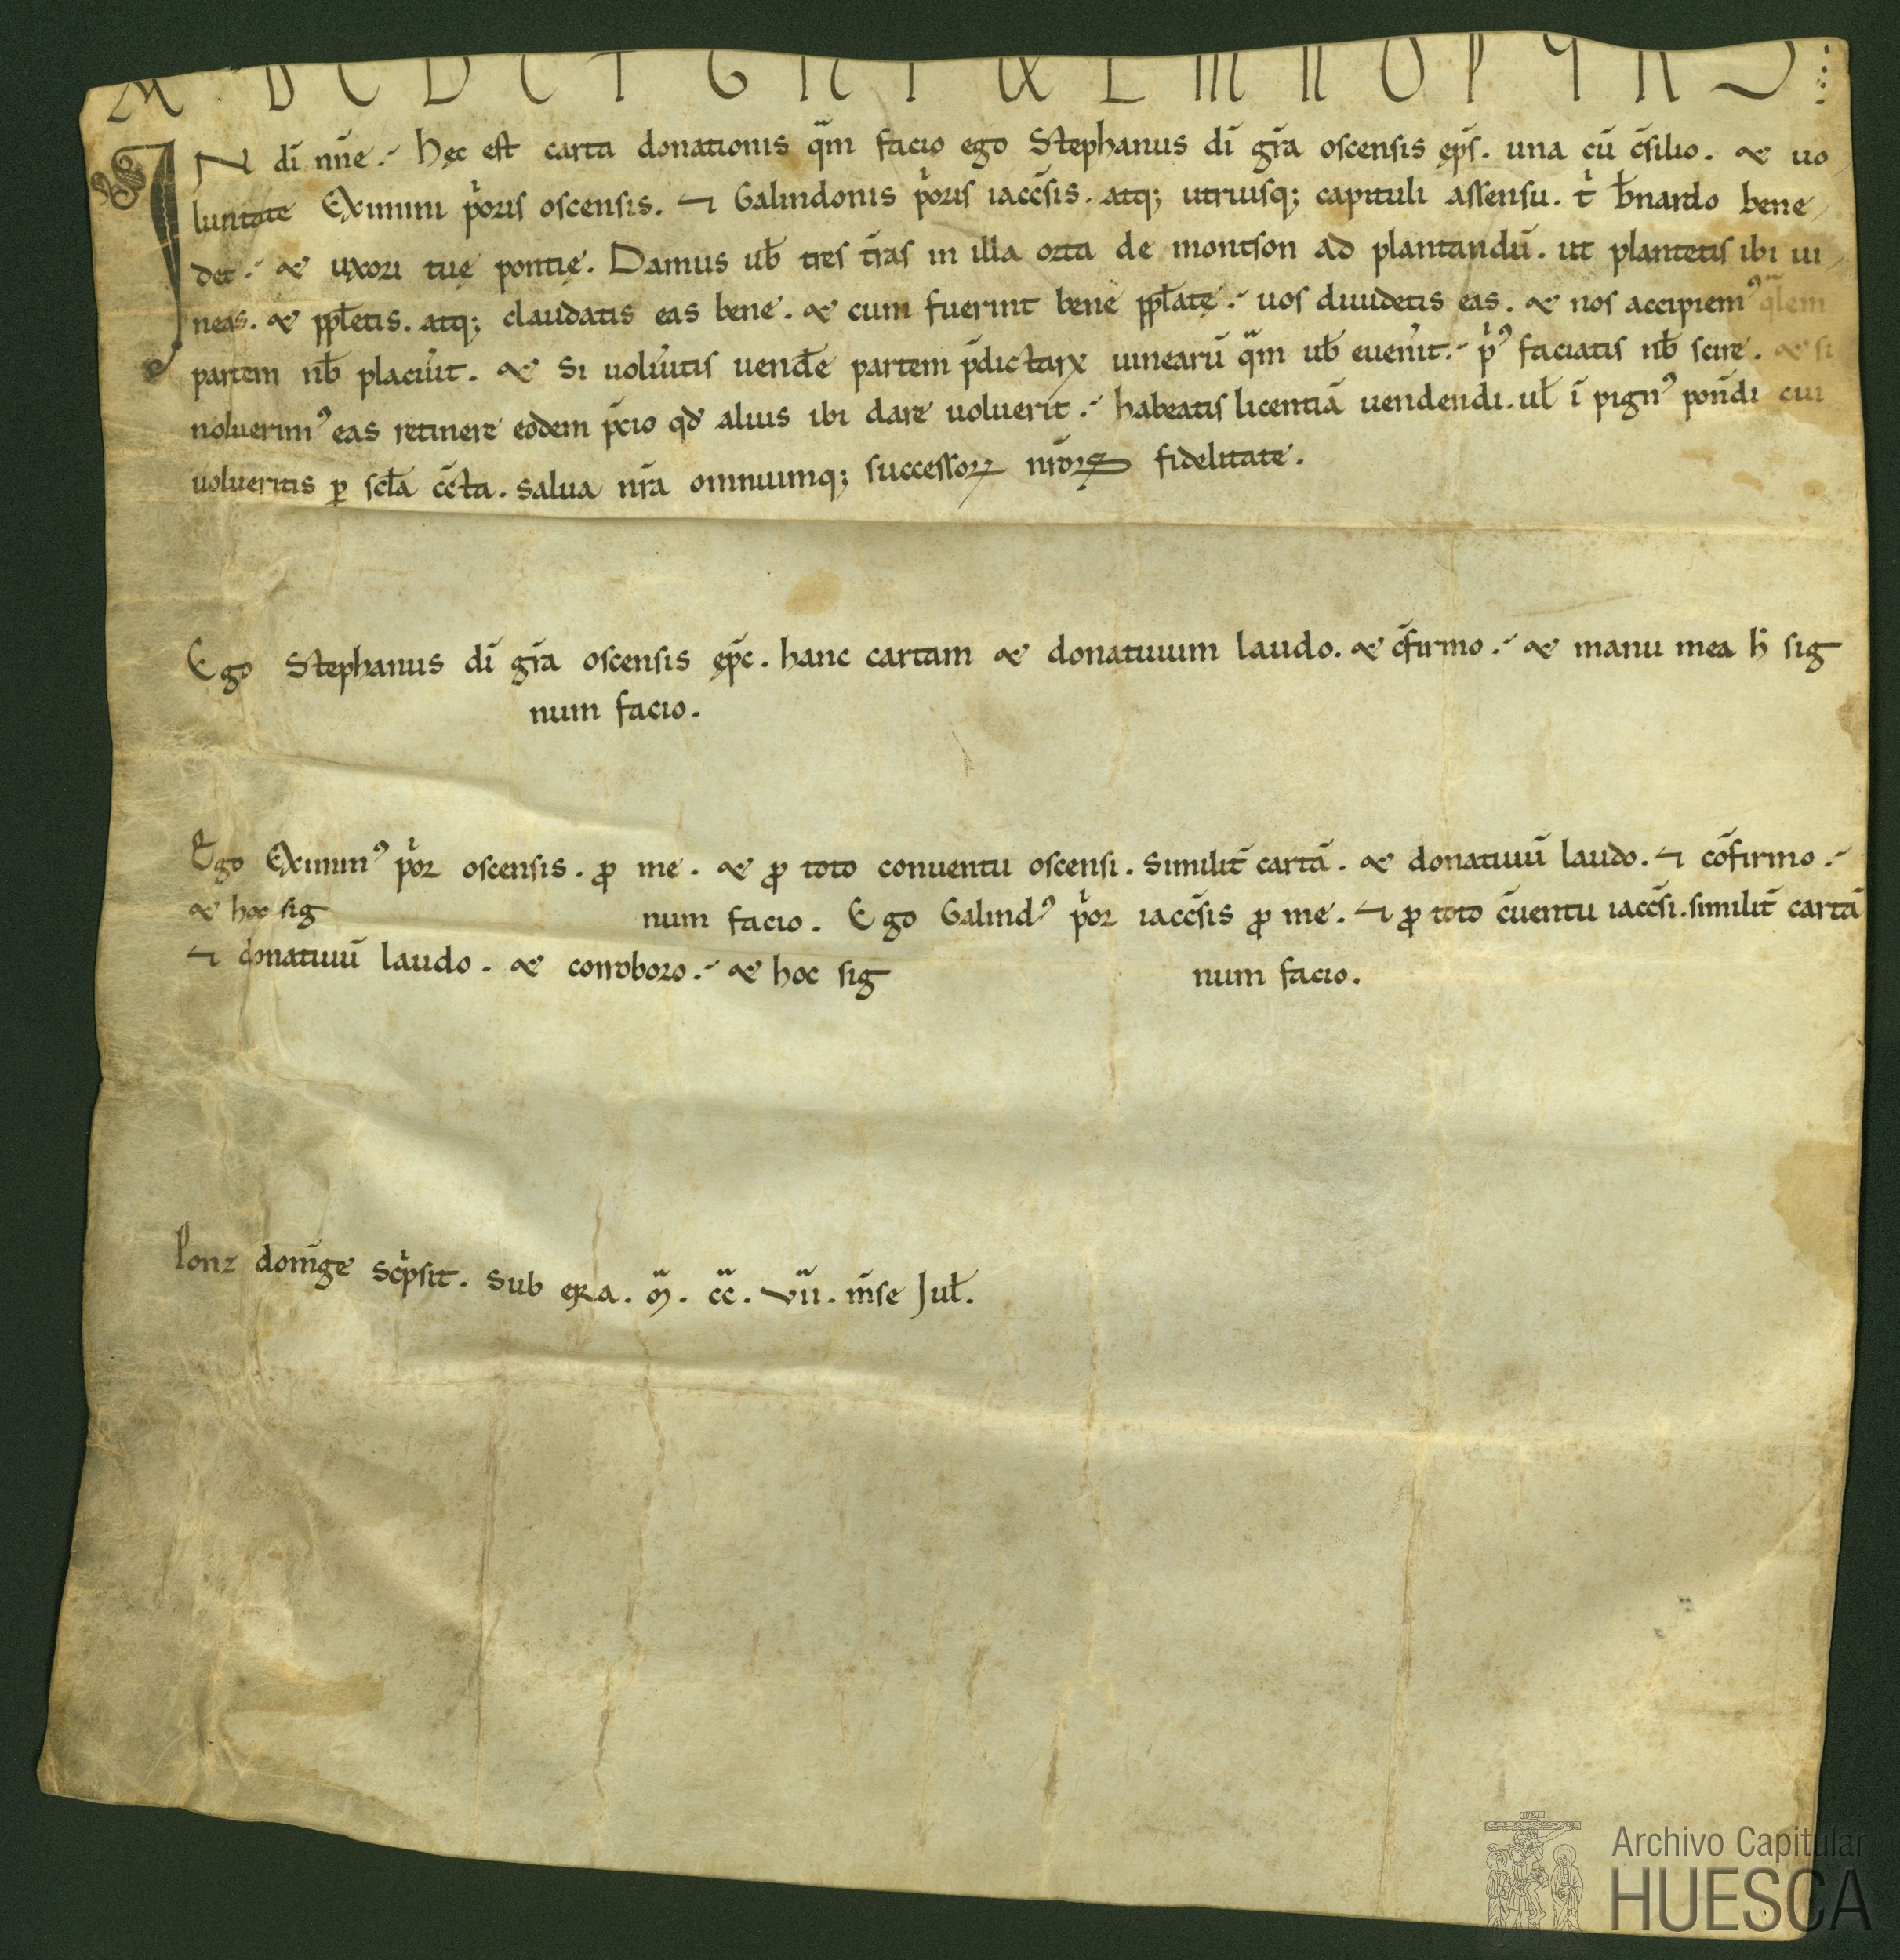 A B C D E F G H I K L M N O P Q R S
IN dī nn̄e. Hęc est carta donationis qᵃm facio ego Stephanus dī gr̄a oscensis ep̄s. una cū c̄silio. & uo
luntate Eximini pⁱoris oscensis. ⁊ Galindonis pⁱoris iacc̄sis. atq; utriusq; capituli assensu. tⁱ b̄nardo bene
det. & uxori tuę pontię. Damus ub̄ tres tr̄as in illa orta de montson ad plantandū. ut plantetis ibi ui
neas. & ppl̄etis. atq; claudatis eas bene. & cum fuerint bene ppl̄atę. uos diuidetis eas. & nos accipiemꝰ qᵃlem
partem nb̄ placu̓it. & si uolu̓itis uend̄e partem p̄dictarꝝ uinearū qᵃm ub̄ euen̓it. pⁱꝰ faciatis nb̄ scire. & si
noluerimꝰ eas retinere eodem p̄cio qđ alius ibi dare uoluerit. habeatis licentiā uendendi. ul̄ ī pignꝰ pon̄di cui
uolueritis ꝑ scl̄a cc̄ta. salua nr̄a omniumq; successorꝝ nr̄orꝝ fidelitate.
Ego Stephanus dī gr̄a oscensis ep̄c. hanc cartam & donatiuum laudo. & c̄firmo. & manu mea h̄ sig
num facio.
Ego Eximinꝰ pⁱor oscensis. ꝓ me. & ꝓ toto conuentu oscensi. similit̄ cartā. & donatiuū laudo. ⁊ cōfirmo.
& hoc sig num facio. Ego Galindꝰ pⁱor iacc̄sis ꝓ me. ⁊ ꝓ toto c̄uentu iacc̄si. similit̄ cartā
⁊ donatiuū laudo. & corroboro. & hoc sig num facio.
Ponz domīge scⁱpsit. Sub ęra. ᵃm. cc̄. vii. m̄se Jul̄.
Archivo Capitular
HUESCA